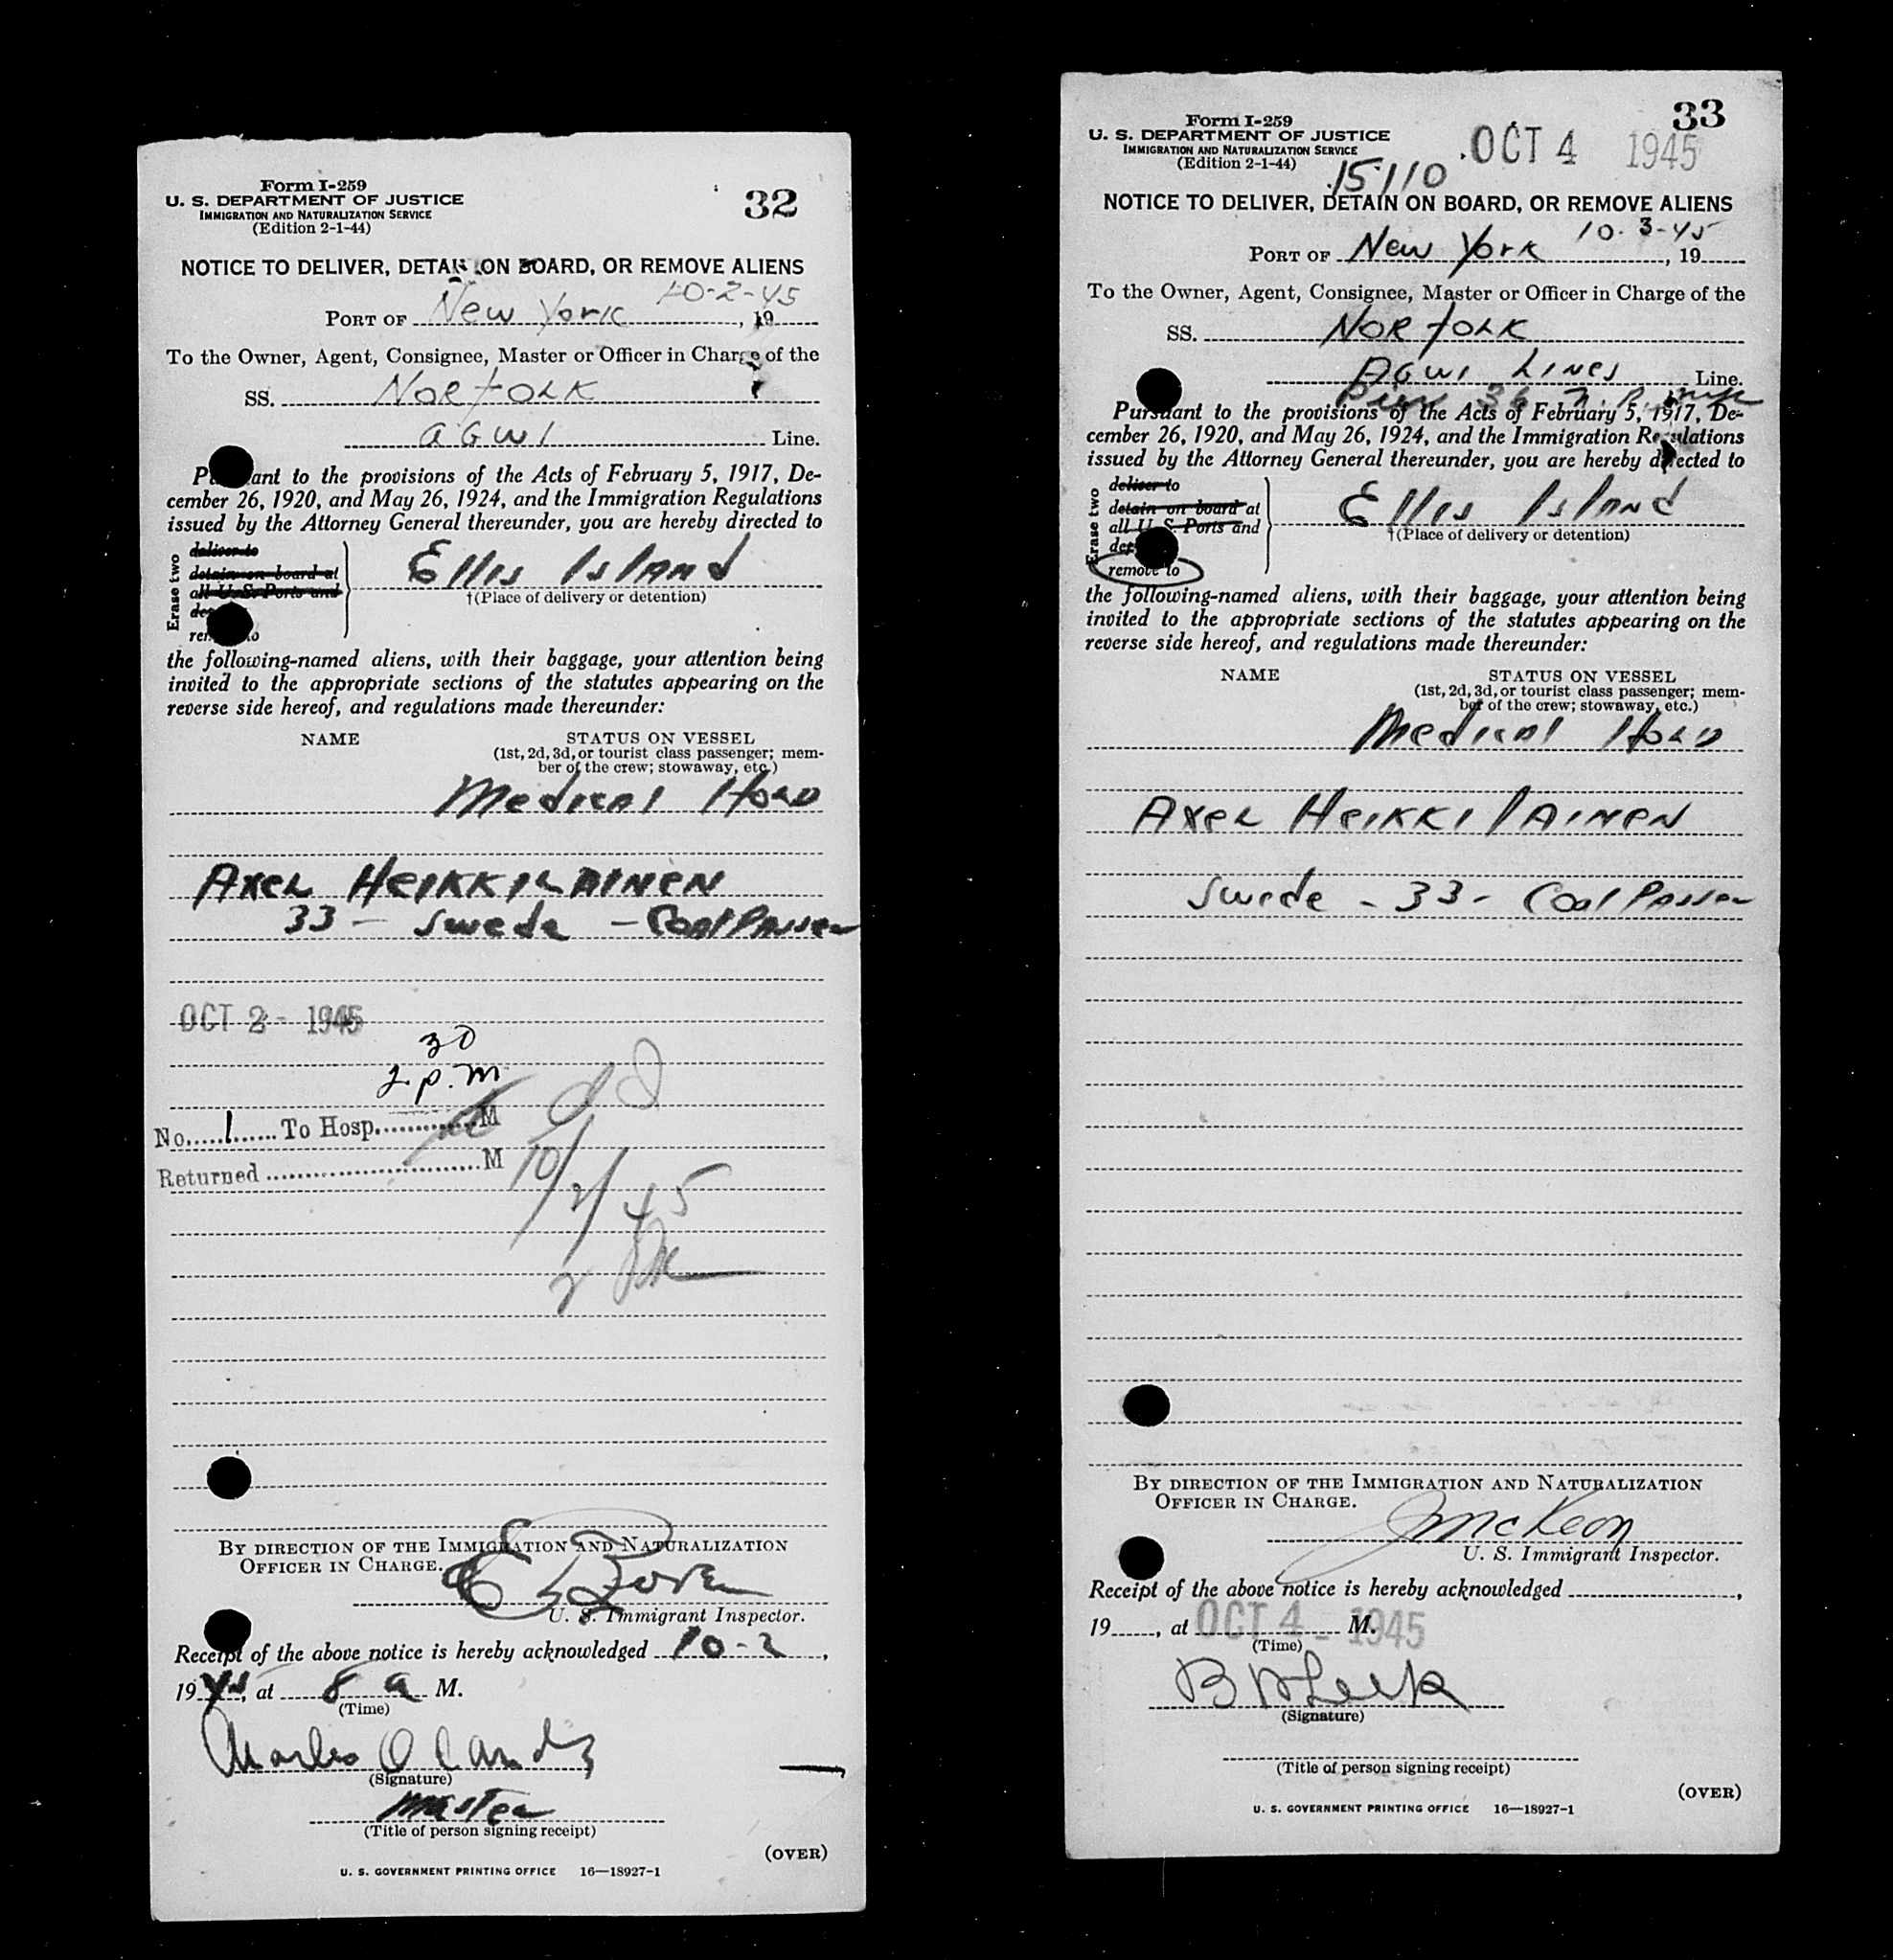 Form I-259
U. S. DEPARTMENT OF JUSTICE
IMMIGRATION AND NATURALIZATION SERVICE
(Edition 2-1-44)
32
NOTICE TO DELIVER, DETAIN ON BOARD, OR REMOVE ALIENS
10-2-45
PORT OF New York, 19
To the Owner, Agent, Consignee, Master or Officer in Charge of the
SS. NORFOLK
AGWI Line.
Pursuant to the provisions of the Acts of February 5, 1917, De-
cember 26, 1920, and May 26, 1924, and the Immigration Regulations
issued by the Attorney General thereunder, you are hereby directed to
Erase two
deliver to
detain on board at
all U. S. Ports and
remove to
Ellis Island
†(Place of delivery or detention)
the following-named aliens, with their baggage, your attention being
invited to the appropriate sections of the statutes appearing on the
reverse side hereof, and regulations made thereunder:
NAME STATUS ON VESSEL
(1st, 2d, 3d, or tourist class passenger; mem-
ber of the crew; stowaway, etc.)
Medical Hold
AXEL HEIKKILAINEN
33 - Swede - Coal Passer
OCT 2 - 1945
30
2 p.m
No. 1 To Hosp. M
Returned M
10/2/45
2 PM
BY DIRECTION OF THE IMMIGRATION AND NATURALIZATION
OFFICER IN CHARGE.
U. S. Immigrant Inspector.
Receipt of the above notice is hereby acknowledged 10-2,
1945, at 8 a M.
(Time)
Charles O
(Signature)
Master
(Title of person signing receipt)
(OVER)
U. S. GOVERNMENT PRINTING OFFICE 16—18927-1
33
Form I-259
U. S. DEPARTMENT OF JUSTICE
IMMIGRATION AND NATURALIZATION SERVICE
(Edition 2-1-44)
OCT 4 1945
15110
NOTICE TO DELIVER, DETAIN ON BOARD, OR REMOVE ALIENS
10-3-45
PORT OF New York, 19
To the Owner, Agent, Consignee, Master or Officer in Charge of the
SS. NORFOLK
AGWI LINES Line.
Pier 36 N.R.
Pursuant to the provisions of the Acts of February 5, 1917, De-
cember 26, 1920, and May 26, 1924, and the Immigration Regulations
issued by the Attorney General thereunder, you are hereby directed to
Erase two
deliver to
detain on board at
all U. S. Ports and
remove to
Ellis Island
†(Place of delivery or detention)
the following-named aliens, with their baggage, your attention being
invited to the appropriate sections of the statutes appearing on the
reverse side hereof, and regulations made thereunder:
NAME STATUS ON VESSEL
(1st, 2d, 3d, or tourist class passenger; mem-
ber of the crew; stowaway, etc.)
Medical Hold
AXEL HEIKKILAINEN
Swede - 33 - Coal Passer
BY DIRECTION OF THE IMMIGRATION AND NATURALIZATION
OFFICER IN CHARGE.
McKeon
U. S. Immigrant Inspector.
Receipt of the above notice is hereby acknowledged ,
19, at M.
OCT 4 - 1945
(Time)
(Signature)
(Title of person signing receipt)
(OVER)
U. S. GOVERNMENT PRINTING OFFICE 16—18927-1